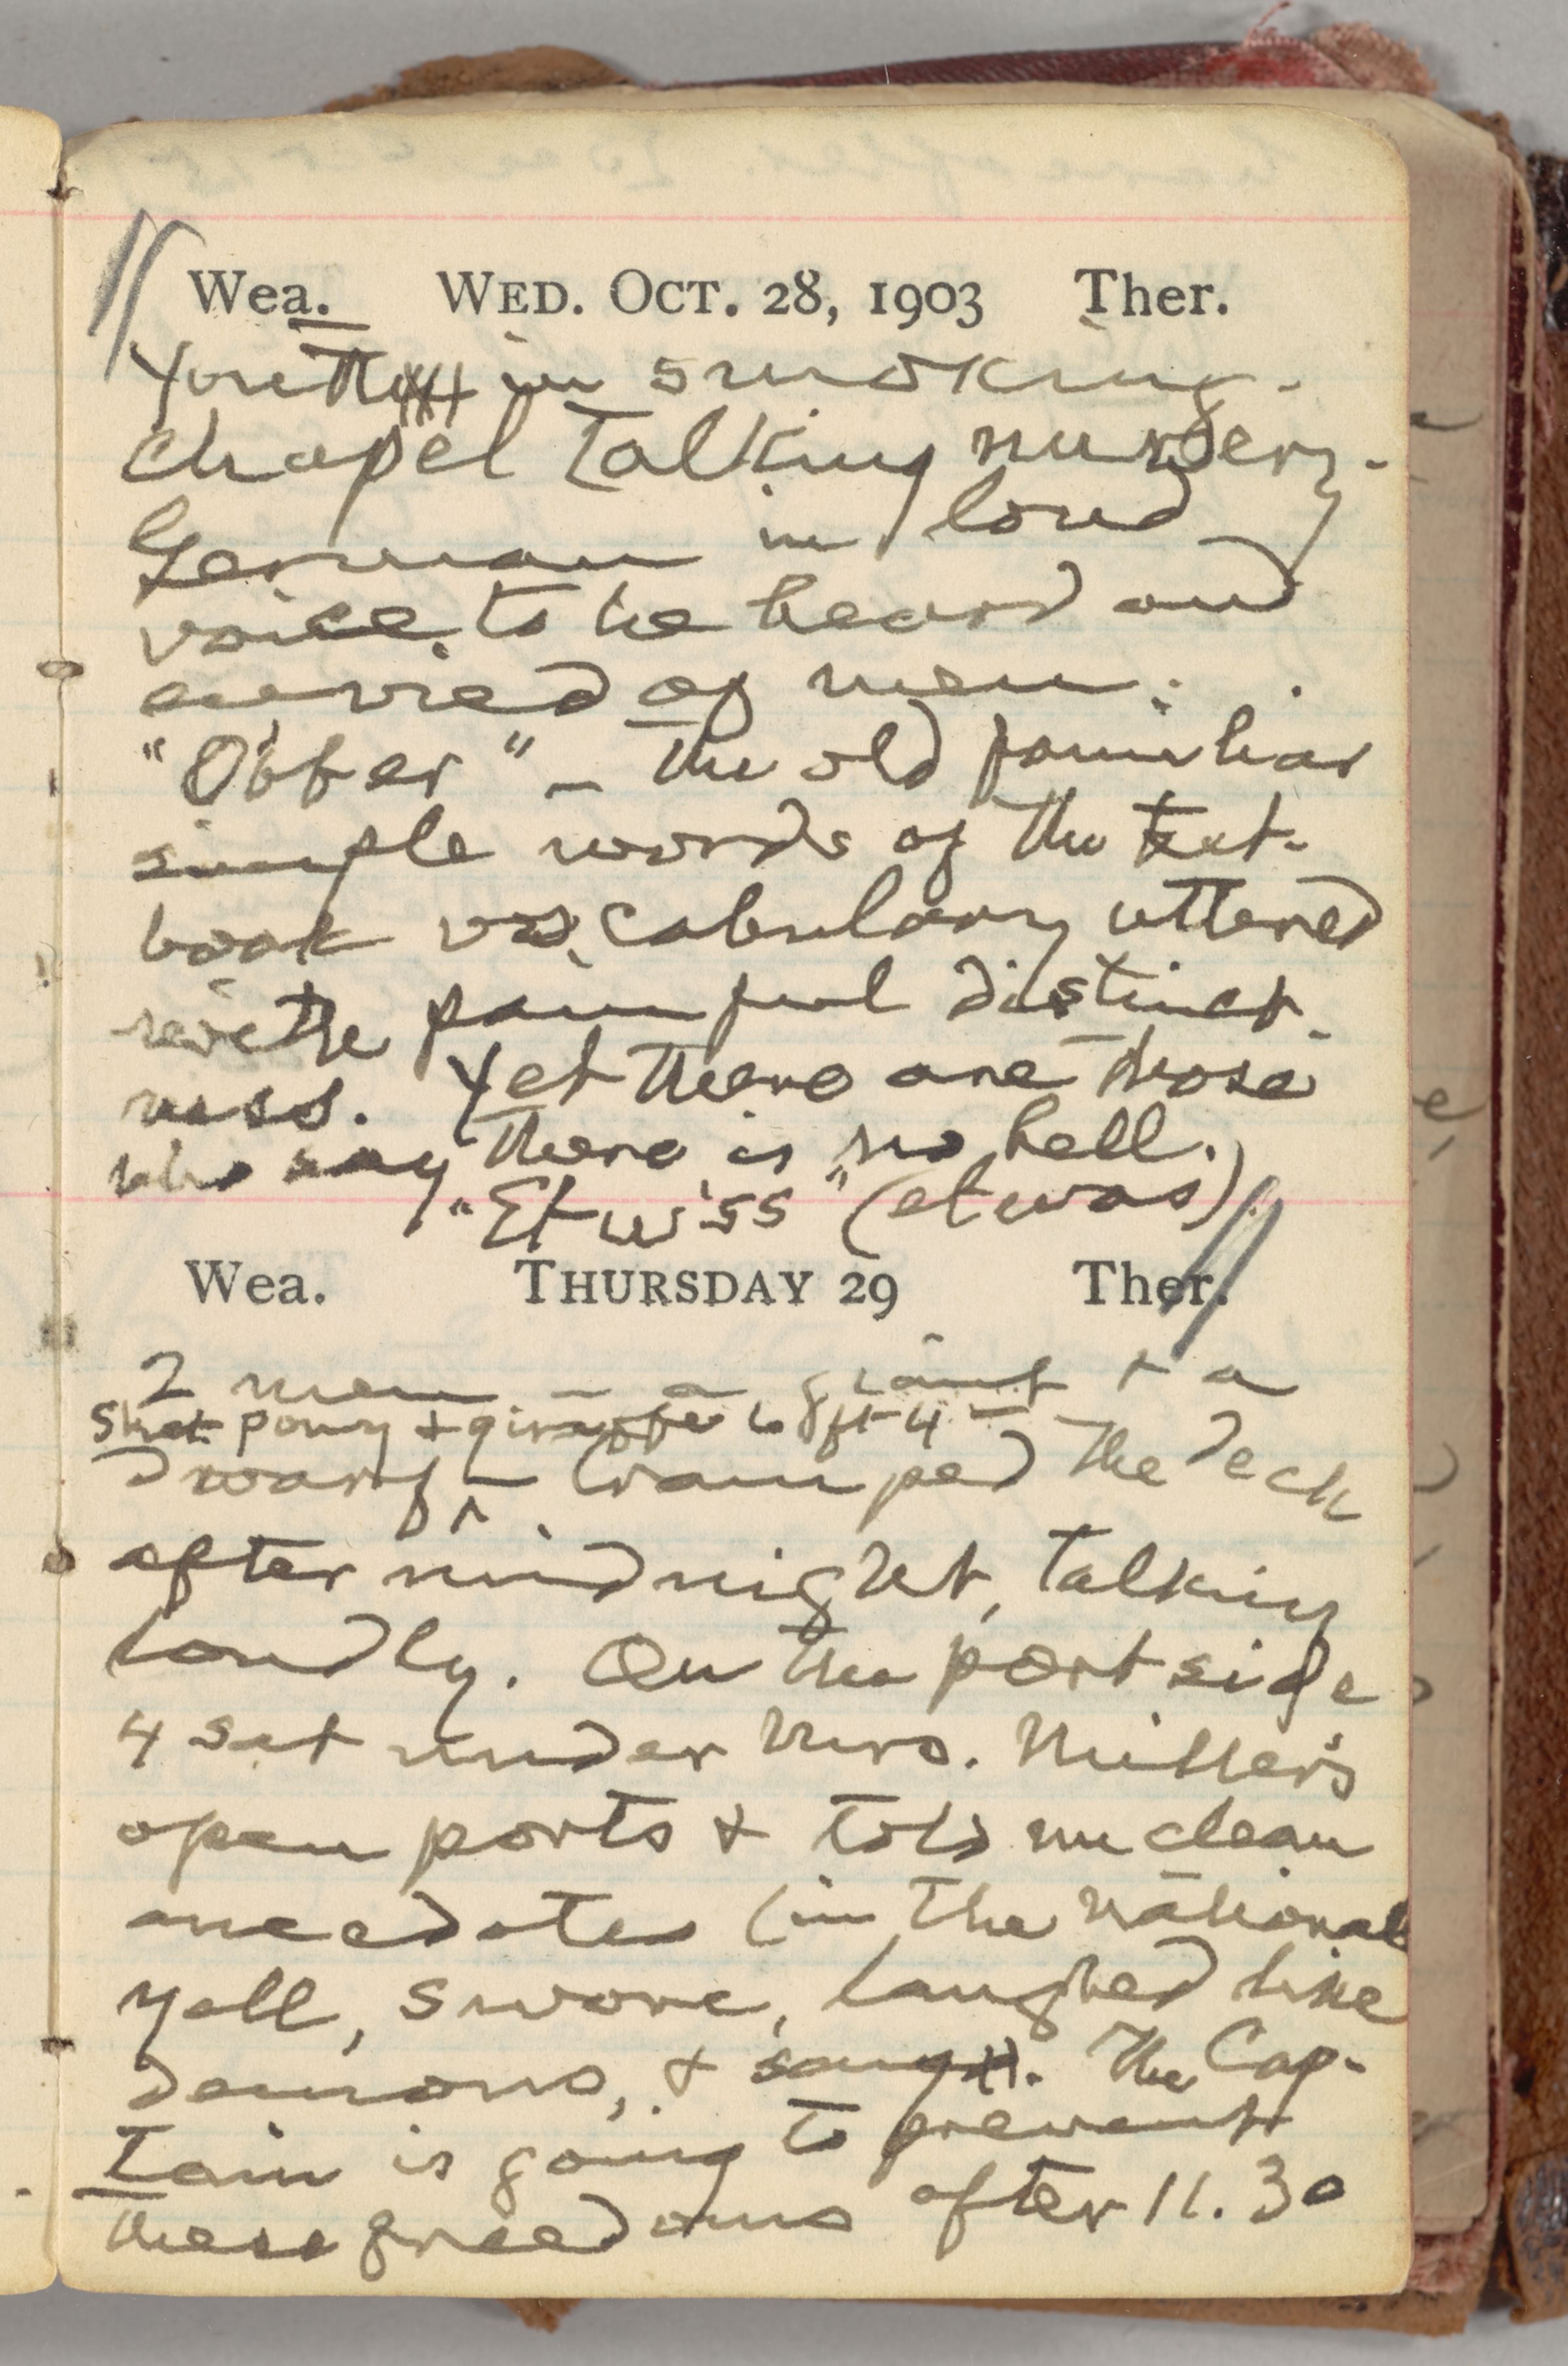 Wea. WED. OCT. 28, 1903 Ther.
Youth in smoking-
chapel talking nursery-
German in loud
voice, to be heard and
envied of men:
"Obber" — the old familiar
simple words of the text-
book vocabulary uttered
with painful distinct-
ness. Yet there are those
who say there is no hell.
"Etwiss" (etwas)
Wea. THURSDAY 29 Ther.
2 men — a giant & a
Shet pony & giraffe 6 ft 4 —
dwarf — tramped the deck
after midnight, talking
loudly. On the port side
4 sat under Mrs. Miller's
open ports & told unclean
anecdotes (in the national
yell, swore, laughed like
demons, & sang. The Cap-
tain is going to prevent
these freedoms after 11.30